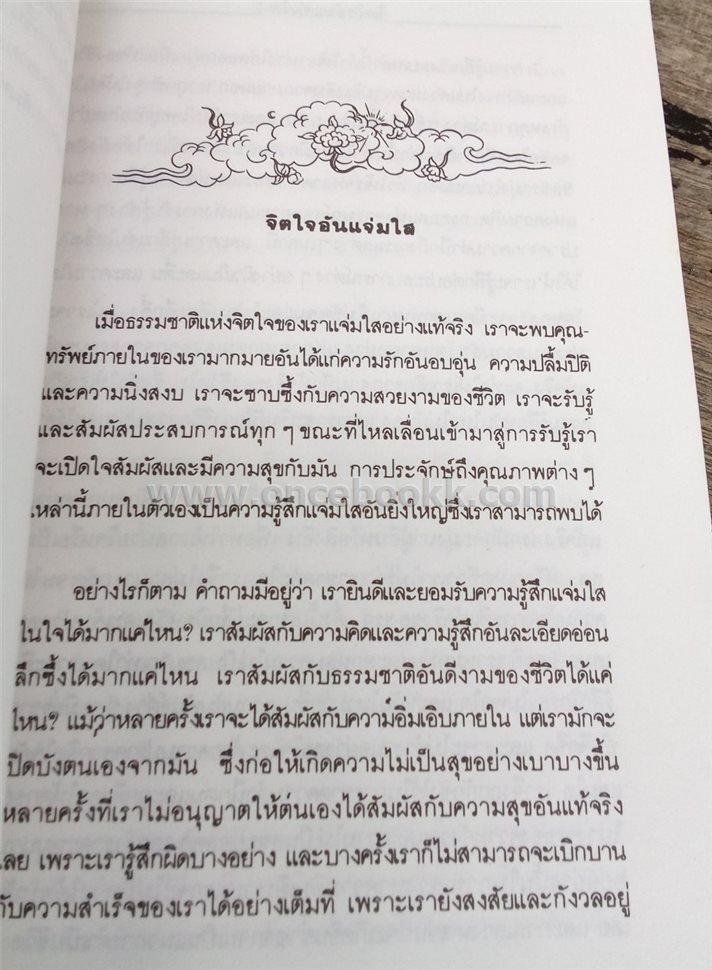 จิตใจอันแจ่มใส
เมื่อธรรมชาติแห่งจิตใจของเราแจ่มใสอย่างแท้จริง เราจะพบคุณ-
ทรัพย์ภายในของเรามากมายอันได้แก่ความรักอันอบอุ่น ความปลื้มปิติ
และความนิ่งสงบ เราจะซาบซึ้งกับความสวยงามของชีวิต เราจะรับรู้
และสัมผัสประสบการณ์ทุก ๆ ขณะที่ไหลเลื่อนเข้ามาสู่การรับรู้เรา
จะเปิดใจสัมผัสและมีความสุขกับมัน การประจักษ์ถึงคุณภาพต่าง ๆ
www.oncebookk.com
เหล่านี้ภายในตัวเองเป็นความรู้สึกแจ่มใสอันยิ่งใหญ่ซึ่งเราสามารถพบได้
อย่างไรก็ตาม คำถามมีอยู่ว่า เรายินดีและยอมรับความรู้สึกแจ่มใส
ในใจได้มากแค่ไหน? เราสัมผัสกับความคิดและความรู้สึกอันละเอียดอ่อน
ลึกซึ้งได้มากแค่ไหน เราสัมผัสกับธรรมชาติอันดีงามของชีวิตได้แค่
ไหน? แม้ว่าหลายครั้งเราจะได้สัมผัสกับความอิ่มเอิบภายใน แต่เรามักจะ
ปิดบังตนเองจากมัน ซึ่งก่อให้เกิดความไม่เป็นสุขอย่างเบาบางขึ้น
หลายครั้งที่เราไม่อนุญาตให้ตนเองได้สัมผัสกับความสุขอันแท้จริง
เลย เพราะเรารู้สึกผิดบางอย่าง และบางครั้งเราก็ไม่สามารถจะเบิกบาน
กับความสำเร็จของเราได้อย่างเต็มที่ เพราะเรายังสงสัยและกังวลอยู่